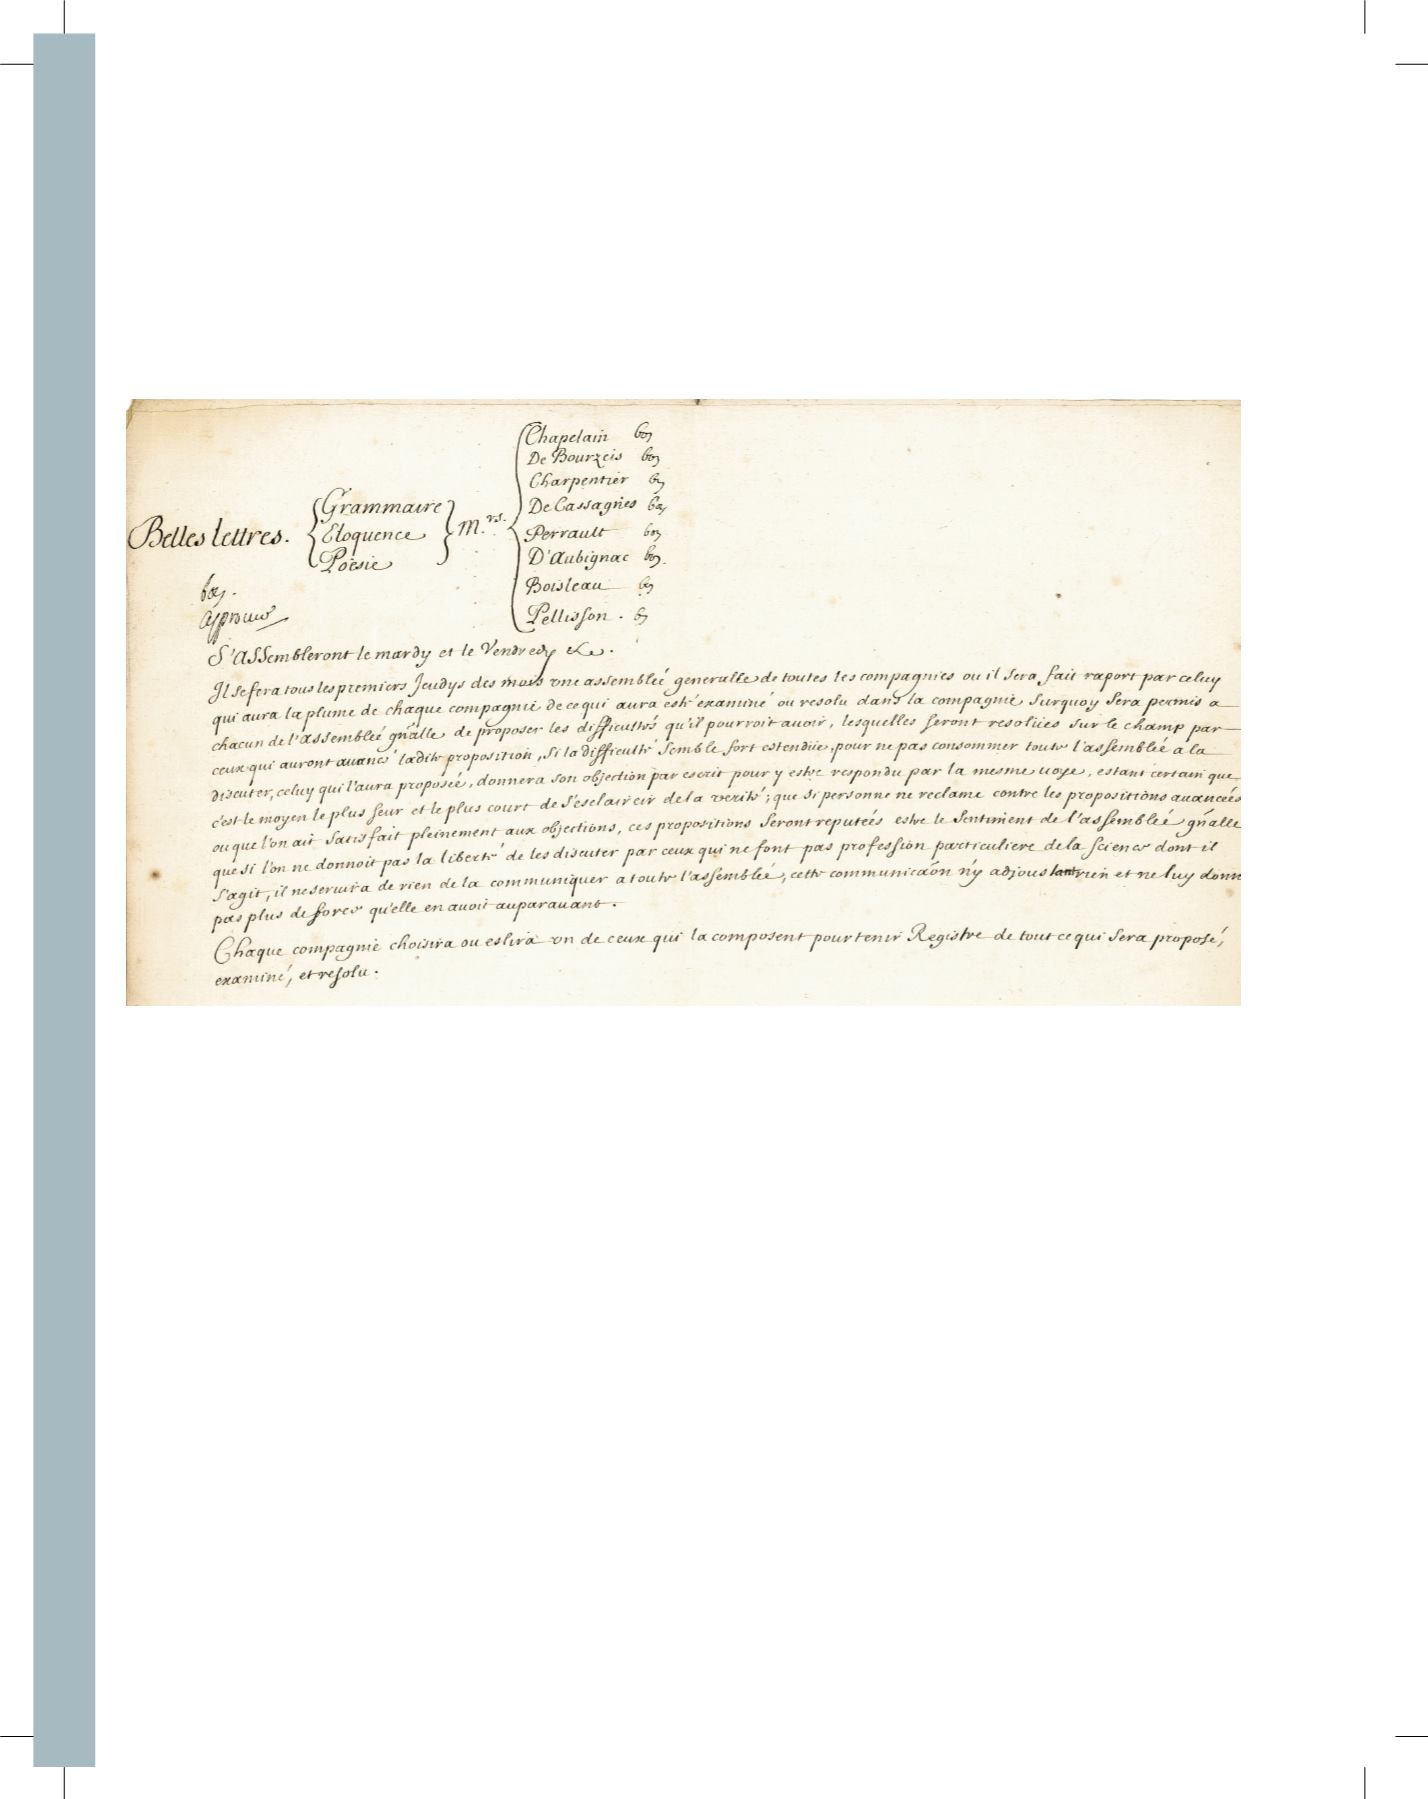 Belles lettres. { Grammaire Eloquence Poësie } M.rs {
Chapelain bon
De Bourzeis bon
Charpentier bon
De Cassagnes bon
Perrault bon
D'Aubignac bon.
Boisleau bon
Pellisson . bon
bon .
approuué
S'Assembleront le mardy et le Vendredy &c .
Il se fera tous les premiers Jeudys des mois vne assembleé generalle de toutes les compagnies ou il sera fait raport par celuy
qui aura la plume de chaque compagnie de ce qui aura esté examiné ou resolu dans la compagnie surquoy sera permis a
chacun de l'assembleé gñalle de proposer les difficultés qu'il pourroit auoir, lesquelles seront resolües sur le champ par
ceux qui auront auancé ladite proposition, si la difficulté semble fort estendüe, pour ne pas consommer toute l'assembleé a la
discuter, celuy qui l'aura proposeé, donnera son objection par escrit pour y estre respondu par la mesme uoye, estant certain que
c'est le moyen le plus seur et le plus court de s'esclaircir de la verité; que si personne ne reclame contre les propositions auanceés
ou que l'on ait satisfait pleinement aux objections, ces propositions seront reputeés estre le sentiment de l'assembleé gñalle
que si l'on ne donnoit pas la liberté de les discuter par ceux qui ne font pas profession particuliere de la science dont il
s'agit, il ne seruira de rien de la communiquer a toute l'assembleé, cette communicaõn n'y adjoustant rien et ne luy donn
pas plus de force qu'elle en auoit auparauant .
Chaque compagnie choisira ou eslira vn de ceux qui la composent pour tenir Registre de tout ce qui sera proposé,
examiné, et resolu .